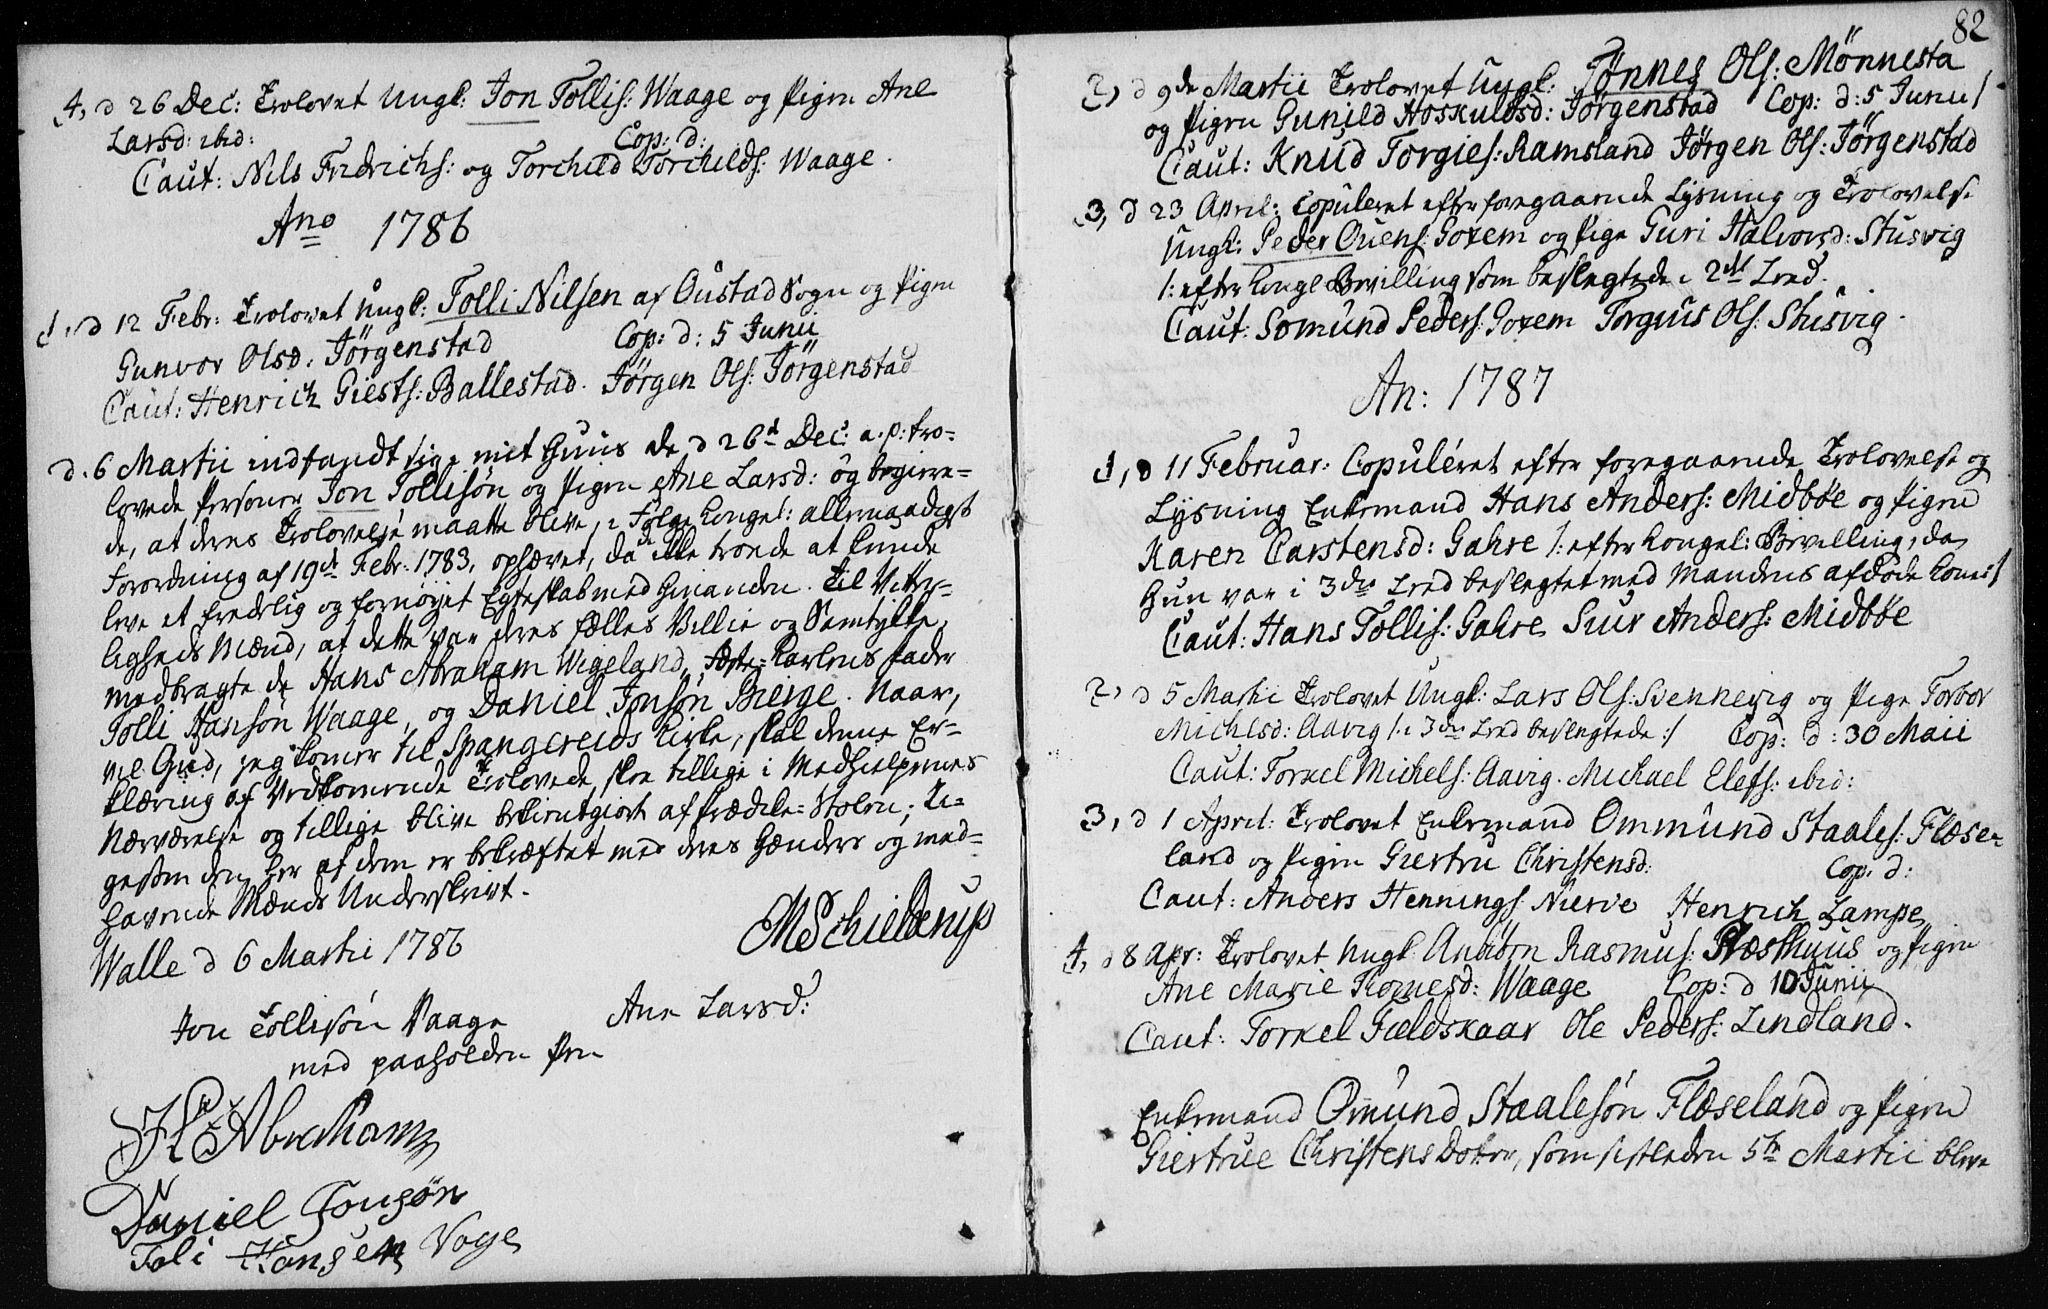 4, d 26 Dec: Trolovet Ungk: Jon Tollis: Waage og Pigen Ane
Larsd: ibid: Cop: d:
Caut: Nils Fridrichs: og Torchild Torchilds: Waage.
Ano 1786
1, d 12 Febr: Trolovet Ungk: Tolli Nilsen af Oustad Sogn og Pigen
Gunvor Olsd: Jörgenstad Cop: d: 5 Junii
Caut: Henrich Giests: Ballestad. Jörgen Ols: Jörgenstad
d. 6 Martii indfandt sig i mit Huus de d 26d Dec: a. p: tro-
lovede Personer Jon Tollisøn og Pigen Ane Larsd: og begiere-
de, at deres Trolovelse maatte blive, i Følge Kongel: allernaadigst
Forordning af 19de Febr: 1783, ophævet, da de ikke troede at kunde
leve et fredelig og fornøyet Egteskab med hinanden. Til Vitter-
ligheds Mænd, at dette var deres fælles Villie og Samtykke,
medbragte de Hans Abraham Wigeland, Karlens Fader
Tolli Hansøn Waage, og Daniel Jonsøn Bierge. Naar,
vil Gud, jeg komer til Spangereids Kirke, skal denne Er-
klæring af Vedkomende Trolovede skee tillige i Medhielpernes
Nærværelse og tillige blive bekiendtgiort af Prædike-Stolen; Li-
gesom den her af dem er bekræftet med deres Hænders og med-
havende Mænds Underskrivt.
Walle d 6 Martii 1786 MSchielderup
Jon Tollisøn Vaage Ane Larsd:
med paaholden Pen
H Abraham
Daniel Jonsøn
Toli Hansen Voge
82
2, d 9de Martii Trolovet Ungk: Tønnes Ols: Mönnesta
og Pigen Gunild Hoskuldsd: Jörgenstad Cop: d: 5 Junii
Caut: Knud Torgies: Ramsland Jørgen Ols: Jørgenstad
3, d 23 April: Copuleret efter foregaaende Lysning og Trolovelse
Ungk: Peder Ouens: Goxem og Pige Guri Halvorsd: Stusvig
/: efter Kongl Bevilling som beslegtede i 2det Leed.
Caut: Somund Peders: Goxem Torgius Ols: Stusvig.
An: 1787
1, d 11 Februar: Copuléret efter foregaaende Trolovelse og
Lysning Enkemand Hans Anders: Midbøe og Pigen
Karen Carstensd: Gahre /: efter Kongel: Bevilling, da
hun var i 3die Leed beslegtet med Mandens afdøde Kone:/
Caut: Hans Tollis: Gahre Siur Anders: Midbøe
2, d 5 Martii Trolovet Ungk: Lars Ols: Svennevig og Pige Torbor
Michelsd: Aavig /: i 3die Leed beslegtede :/ Cop: d: 30 Maii
Caut: Torkel Michels: Aavig. Michael Elefs: ibid:
3, d 1 April: Trolovet Enkemand Ommund Staales: Flæse-
land og Pigen Giertru Christensd: Cop: d:
Caut: Anders Hennings: Nierve Henrich Lampe
4, d 8 Apr: Trolovet Ungk: Anbiörn Rasmus: Præsthuus og Pigen
Ane Marie Tomesd: Waage Cop: d 10 Junii
Caut: Torkel Gieldskaar Ole Peders: Lindland.
Enkemand Omund Staalesøn Flæseland og Pigen
Giertrue Christens Dotter, som sistleden 5te Martii bleve